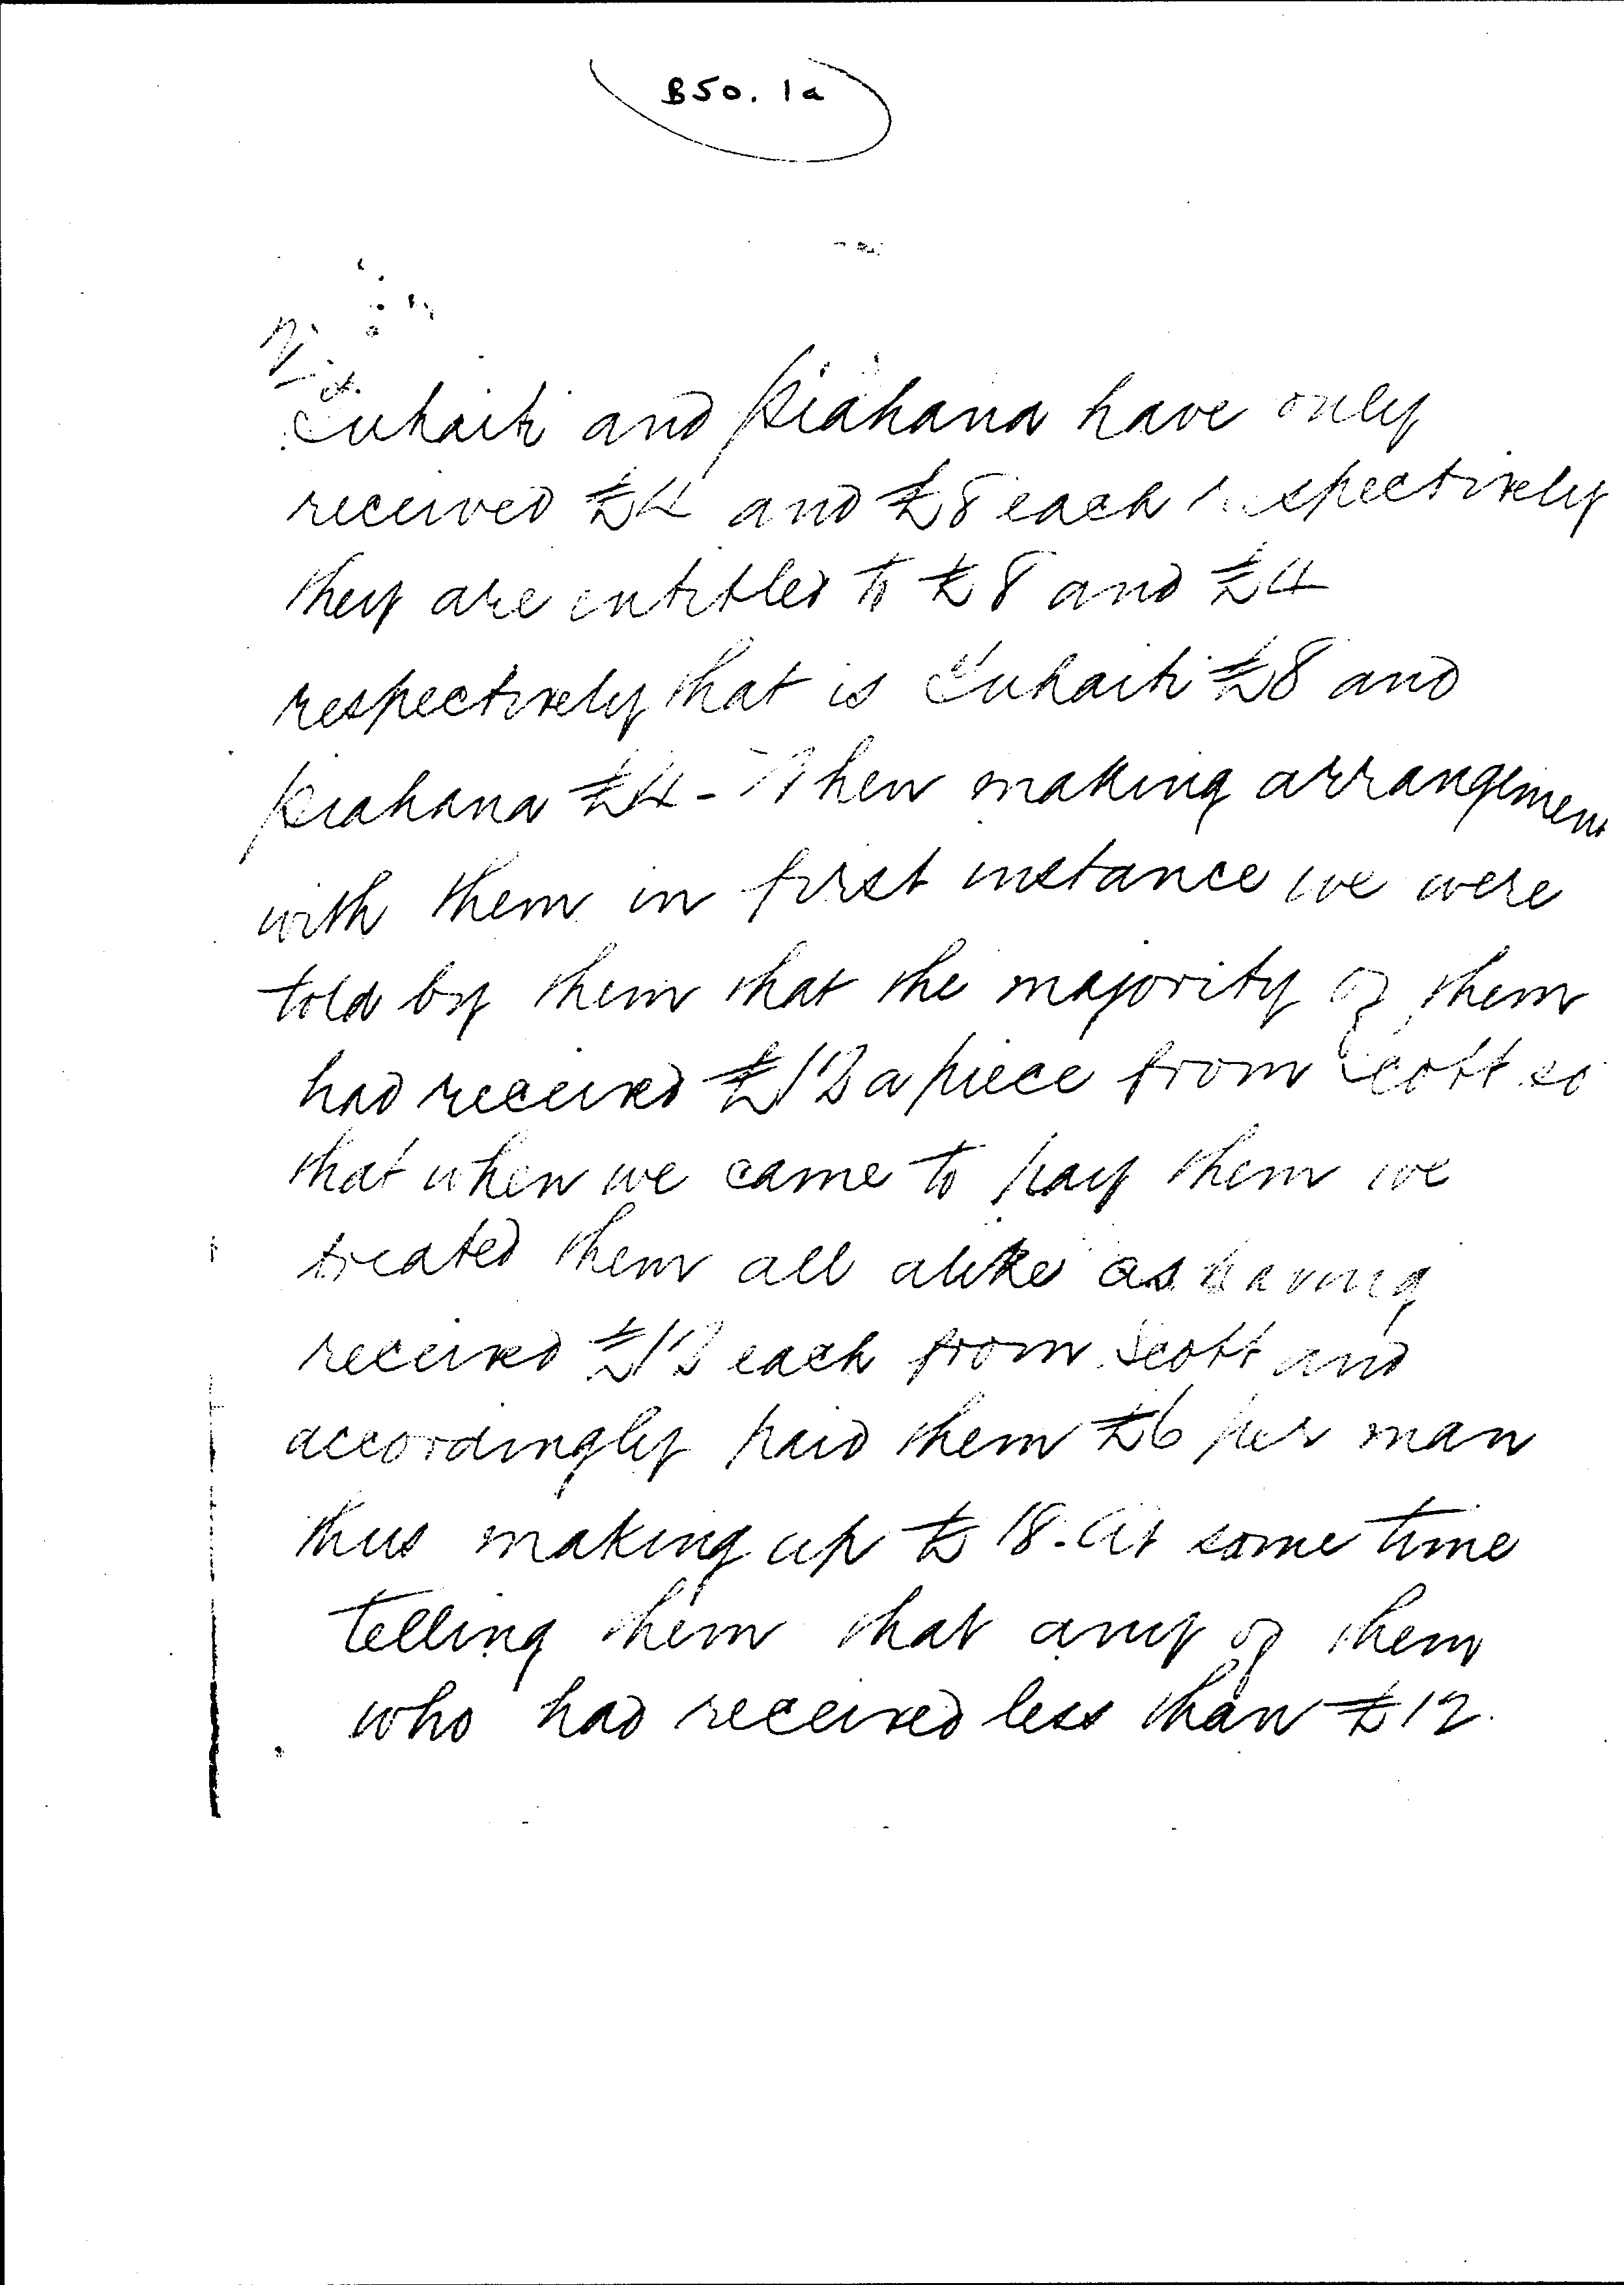 B50. 1a
Tuhaiti and Piahana have only
received £4 and £8 each respectively
they are entitled to £8 and £4
respectively that is Tuhaiti £8 and
Piahana £4 - When making arrangement
with them in first instance we were
told by them that the majority of them
had received £12 a piece from Scott so
that when we came to pay them we
treated them all alike as having
received £12 each from Scott and
accordingly paid them £6 per man
thus making up £18. At same time
telling them that any of them
who had received less than £12.